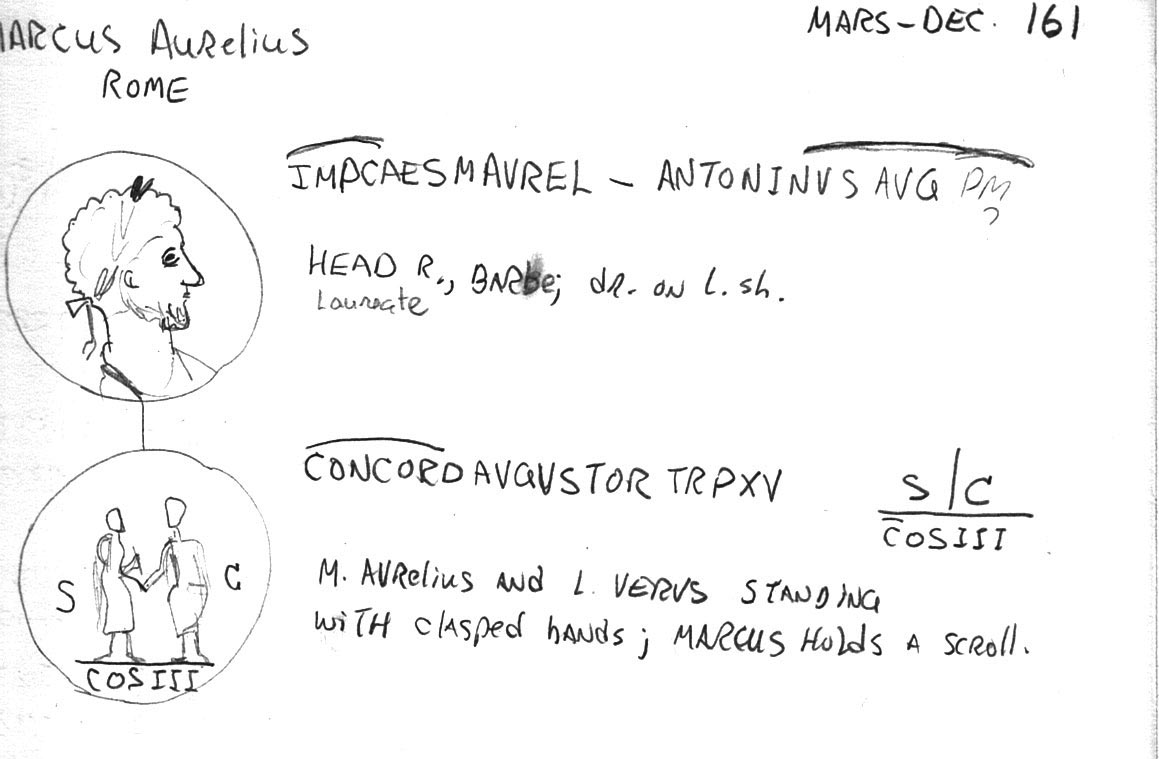 MARCUS AURelius
ROME
MARS-DEC. 161
IMPCAESMAVREL - ANTONINVS AVG PM
?
HEAD R., BARbe; dR. ON L. sh.
Laureate
CONCORDAVGVSTOR TRPXV
S/C
COSIII
S C
COSIII
M. AVRelius AND L. VERVS STANDING
wiTH clAsped hANds; MARCUS HOLDS A SCROLL.